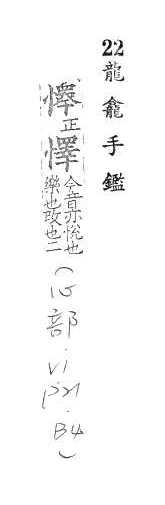 22 龍龕手鑑
正懌今音亦悅也
樂也改也二
(心部.V1
P21.
B4)